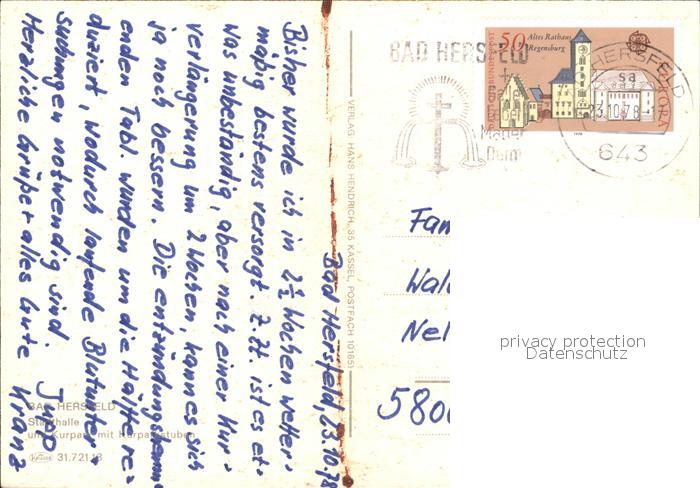 Bad Hersfeld, 23.10.78
Bisher wurde ich in 2½ Wochen wetter-
mäßig bestens versorgt. z.Zt. ist es et-
was unbeständig, aber nach einer Kur-
verlängerung um 2 Wochen, kann es sich
ja noch bessern. Die entzündungshemm-
enden Tabl. wurden um die Hälfte re-
duziert, wodurch laufende Blutunter-
suchungen notwendig sind.
Herzliche Grüße + alles Gute
Jupp Kranz
BAD HERSFELD
Stadthalle
und Kurpark mit Kurparkstuben
31.721
VERLAG HANS HENDRICH, 35 KASSEL, POSTFACH 101851
BAD HERSFELD
DEUTSCHE BUNDESPOST
50
Altes Rathaus
Regensburg
EUROPA
1978
HERSFELD
sa
23.10.78
643
Fam
Wal
Nel
580
privacy protection
Datenschutz